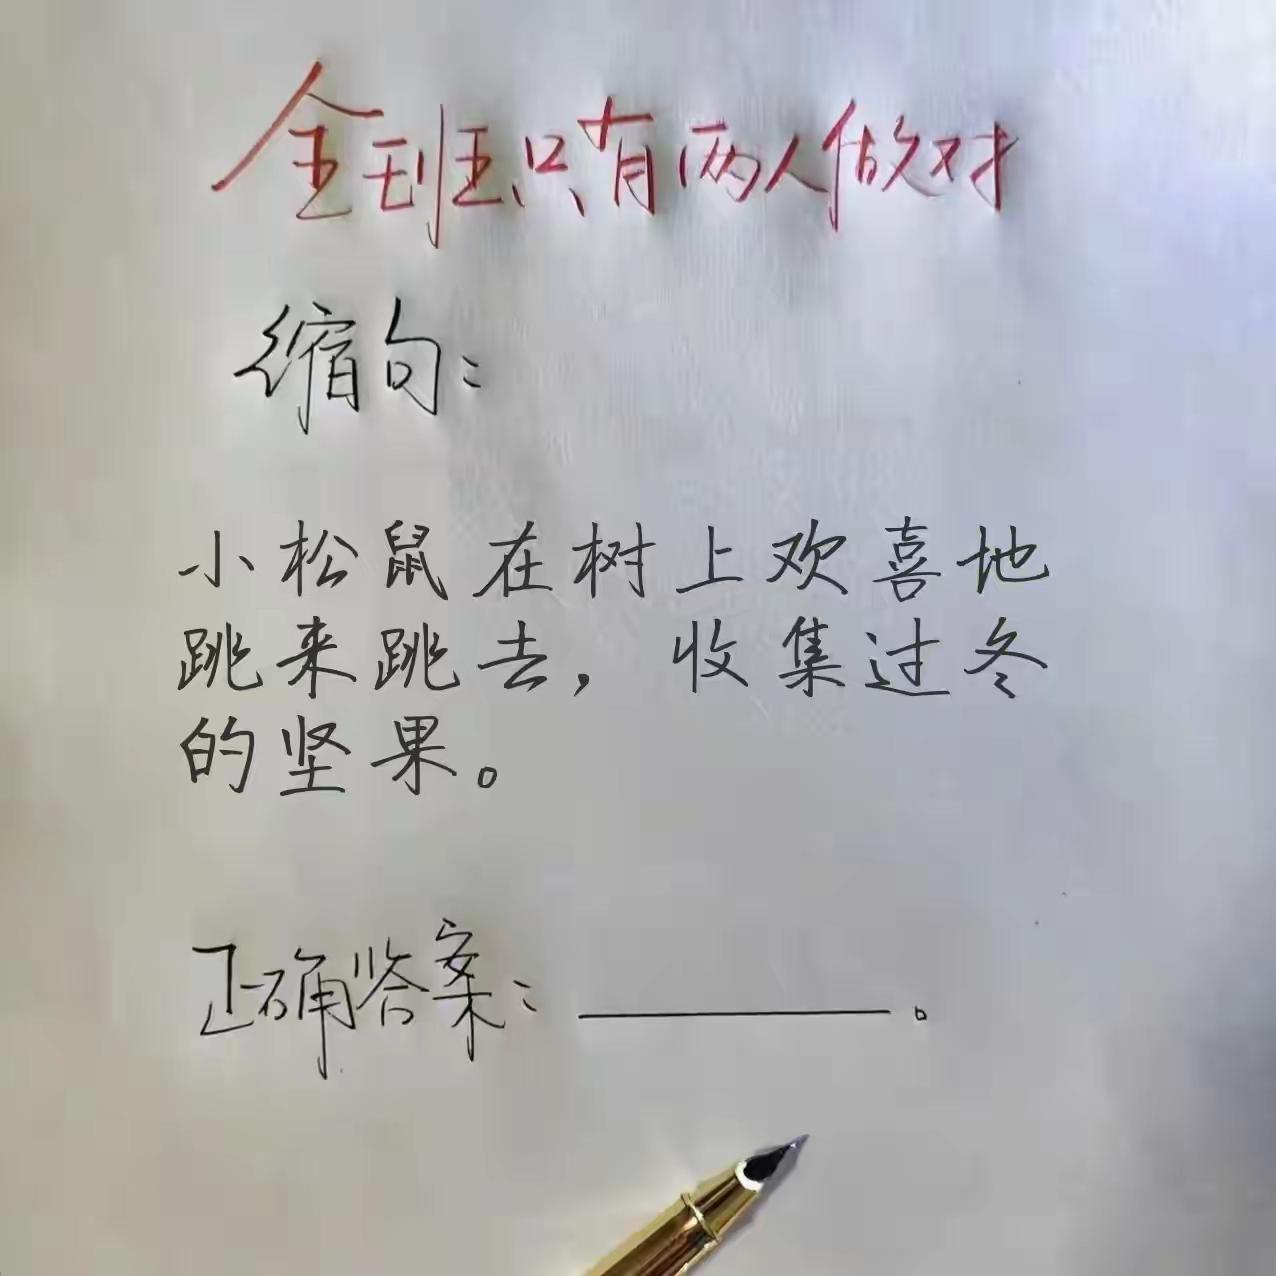 全班只有两人做对
缩句：
小松鼠在树上欢喜地
跳来跳去，收集过冬
的坚果。
正确答案：________。